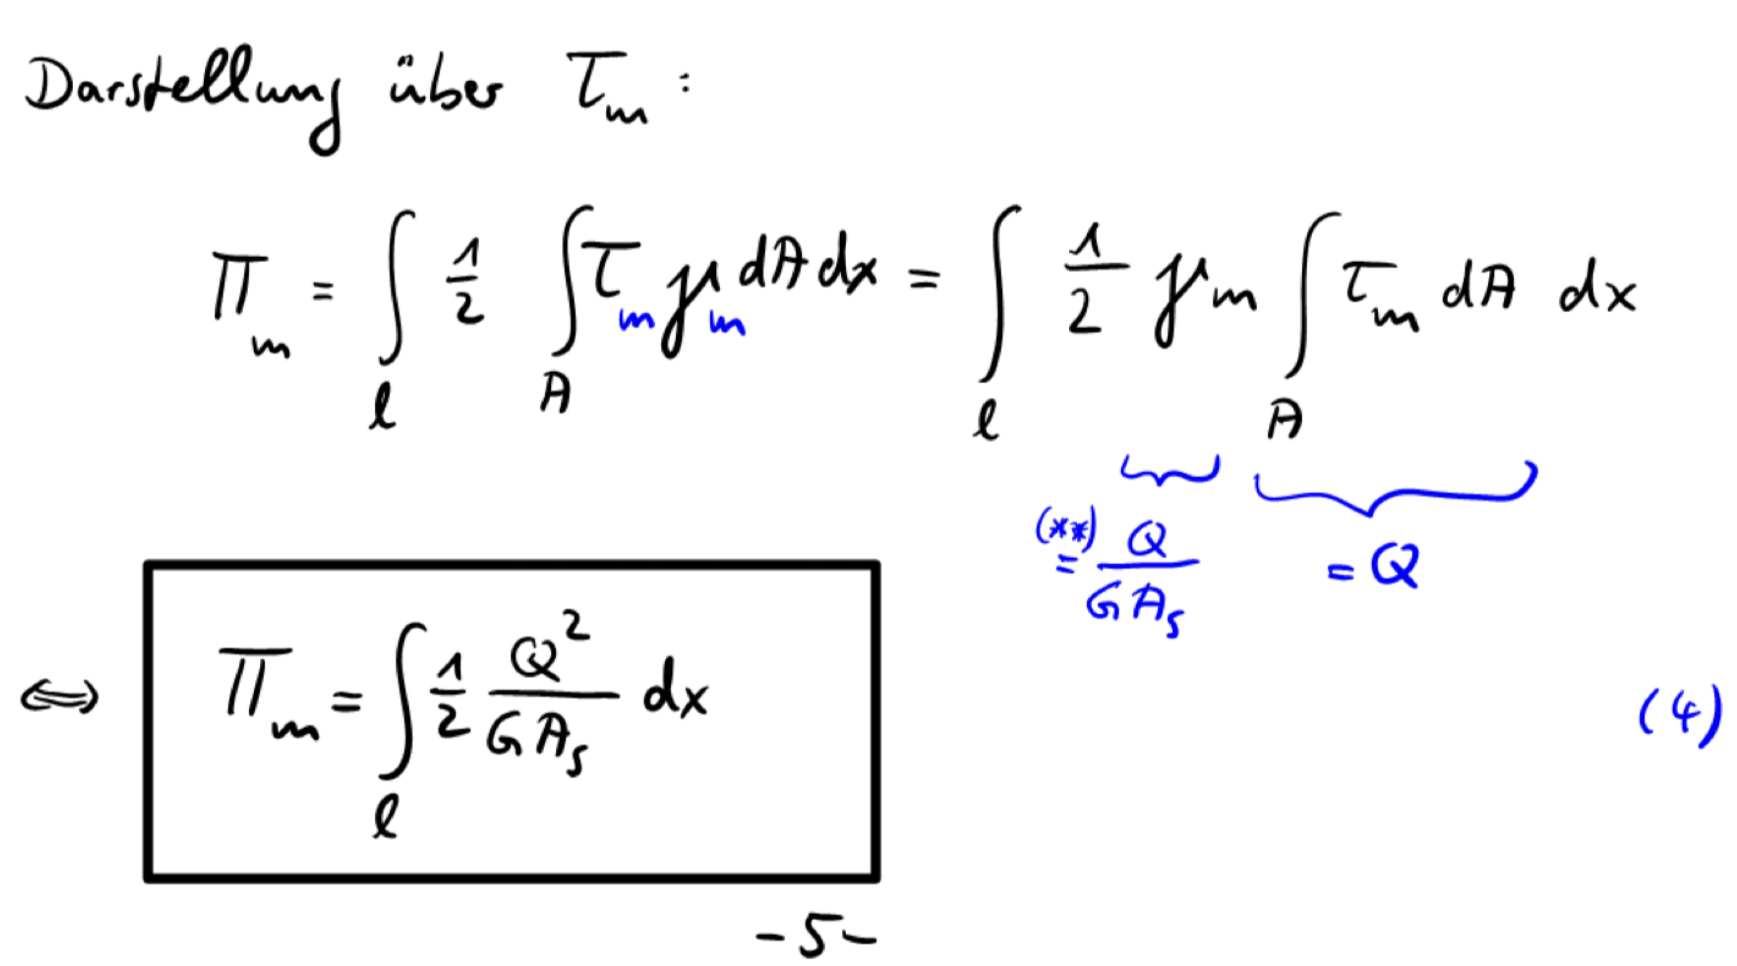 Darstellung über τ_m :
Π_m = ∫_l 1/2 ∫_A τ_m γ_m dA dx = ∫_l 1/2 γ_m ∫_A τ_m dA dx
(**) = Q/(G A_s)   = Q
⟺ Π_m = ∫_l 1/2 Q²/(G A_s) dx   (4)
-5-